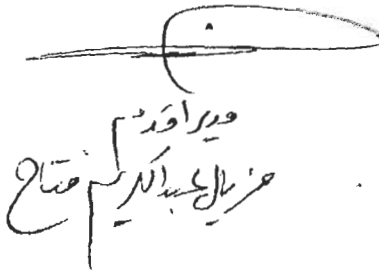 مدير اقدم
فريال عبدالكريم فتاح